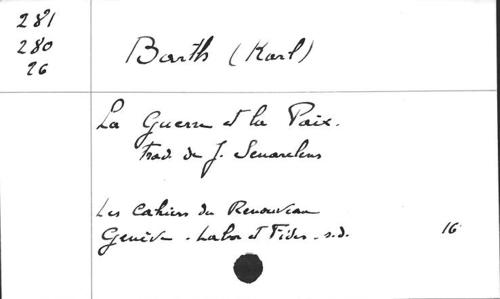 281
280
26
Barth (Karl)
La Guerre et la Paix.
trad. de J. Senarclens
Les Cahiers du Renouveau
Genève - Labor et Fides - s.d.
16